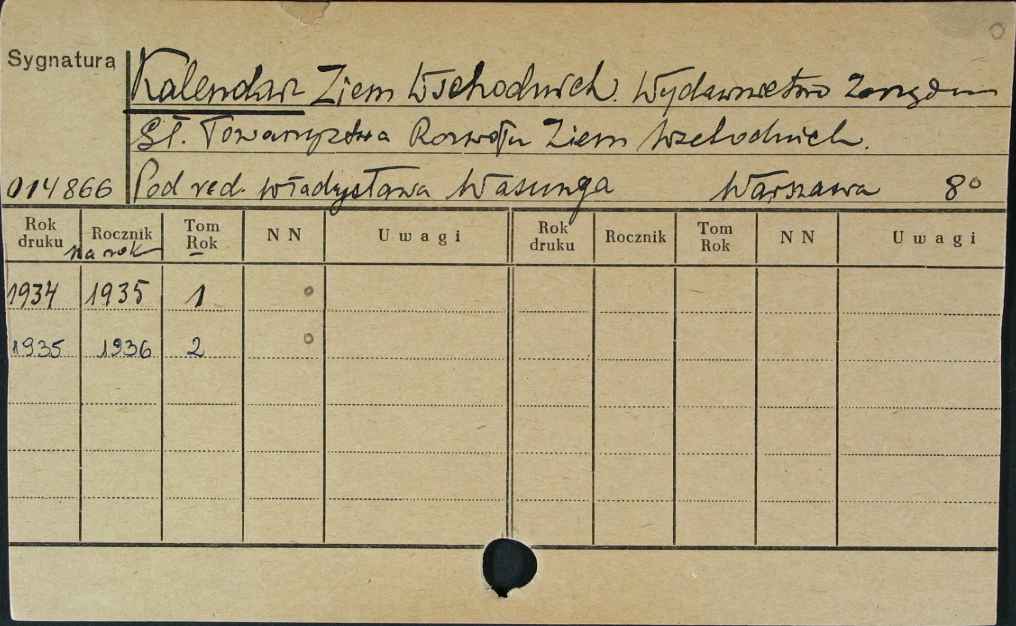 Sygnatura
Kalendarz Ziem Wschodnich. Wydawnictwo Zarządu
Gł. Towarzystwa Rozwoju Ziem Wschodnich.
014866 Pod red. Władysława Wasunga Warszawa 8°
Rok druku Rocznik Tom Rok NN Uwagi Rok druku Rocznik Tom Rok NN Uwagi
na rok
1934 1935 1
1935 1936 2